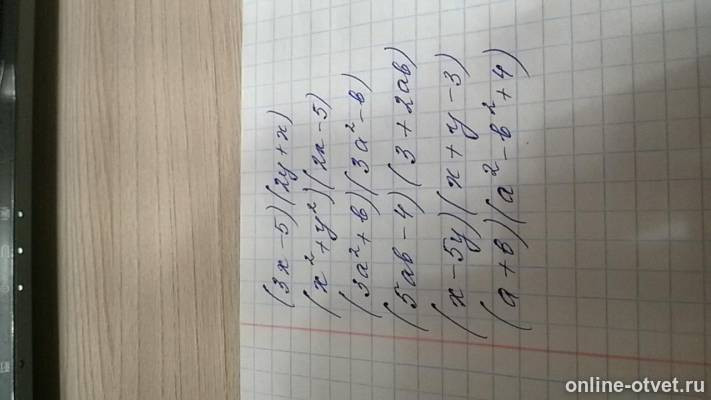 (3x-5)(2y+x)
(x²+y²)(2x-5)
(3a²+b)(3a²-b)
(5ab-4)(3+2ab)
(x-5y)(x+y-3)
(a+b)(a²-b²+4)
online-otvet.ru